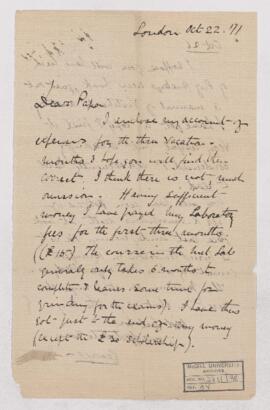 London Oct 22. 71
Dear Papa
I enclose my account of
expenses for the three Vacation
months & hope you will find them
correct. I think there is not much
omission. Having sufficient
money I have payed my Laboratory
fees for the first three months.
(£15). The course in the
generally only takes 6 months to
complete & leaves some time for
grinding for the exams). I have thus
got just to the end of my money
(except the £20 Scholarships).
McGILL UNIVERSITY
ARCHIVES